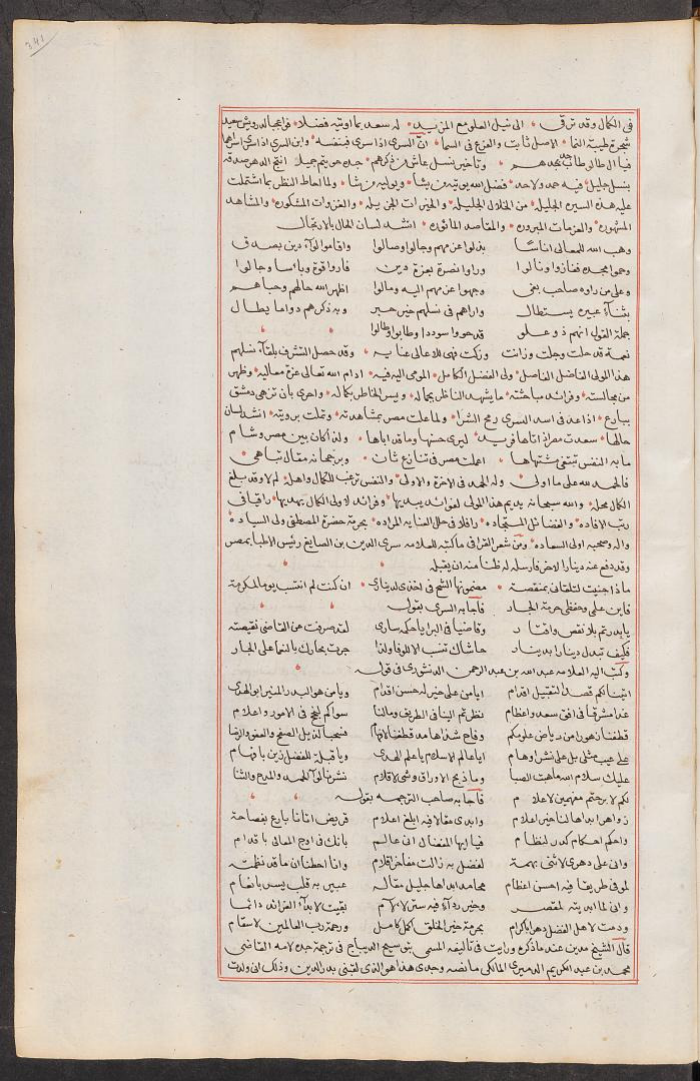 ٣٤١
في الكمال وقد ترقى الى نيل العلو مع المزيد له سعد بما اوتيه فضلا
شجرة طيبة النما الاصل ثابت والفرع في السما ان السرى اذا سرى فبنفسه وابن السرى اذا سرى اسراهما
فيا ال طالو طاب مجدهم وتاخير نسل عاش من ذكرهم
بنسل جليل فيه حمد ولاحد فضل الله يوتيه من يشا ويوليه من شا ولما احاط النظر بما اشتملت
عليه هذه السيره الجليلة من الخلال الجليله والخيرات الجزيله والغزوات المشكوره والمشاهد
المشهوره والعزمات المبروره والمقاصد الماثوره انشد لسان الحال بالارتجال
وهب الله للمعالي اناسا بذلوا عزمهم وجالوا وصالوا واقاموا لوآء دين بصدق
وحموا مجده ففازوا ونالوا وراوا نصرة بعزة دين فازوا قوة وباسا وجالوا
وعلى من راوه صاحب بغي وجهوا عزمهم اليه ومالوا اظهر الله حالهم وحباهم
بثنآء عبيره يستطال واراهم في نسلهم خير حبر وبه ذكرهم دواما يطال
جملة القول انهم ذو علو قد حووا سوددا وطابوا وطالوا
نعمة قد حلت وجلت وزانت وزكت فهي للاعالي عنايه وقد حصل التشرف بلقآء نسلهم
هذا المولى الفاضل الفاصل ولي الفضل الكامل المومى اليه فيه ادام الله تعالى عزة معاليه وظهر
من مجالسته وفرائد مباحثته ما يشهد الناظر بجماله ويسر الخاطر بكماله واحرى بان تزهى دمشق
ببارع اذا عد في اسد السرى رمح الشرا ولما علت مصر بمشاهدته وتملت برويته انشد لسان
حالها سعدت مصر اذ اتاها فريد ليرى حسنها وما قد اباها ولقد كان بين مصر وشام
ما به النفس تبتغي مشتهاها اعملت مصر في تنازع شان وبرجمانه مقال تباهي
فالحمد لله على ما اولى وله الحمد في الاخرة والاولى والنفس ترغب للكمال واهله لم لا وقد بلغ
الكمال محله والله سبحانه يديم هذا المولى لفوائد يبديها وفرائد لاولى الكمال يهديها راقيا في
رتب الافاده والفضائل المستجاده رافلا في حلل العنايه المراده بحرمة حضرة المصطفى ولي السياده
واله وصحبه اولى السعاده ومن شعر القرافي ما كتبه للعلامه سرى الدين بن الصايغ رئيس الاطبا بمصر
وقد دفع عنه دينارا لامر فارسله له ظنا منه ان يقبله
ماذا جنيت لتلقاني بمنقصة مضمونها الشح في اخذي لديناري ان كنت لم انتسب يوما لمكرمة
فاين علمي وحفظي حرمة الجار فاجابه السرى بقول
يا بدر تم بلا نقص وافتار وقاضيا في البرايا حكمه ساري لقد صرفت عن القاضي نقيصته
فكيف تبدل دينارا بدينار حاشاك تنسب الا للوفا ولذا جرت بحارك بالنعما على الجار
وكتب اليه العلامه عبد الله بن عبد الرحمن الدنشوري في قوله
اتينا كم قصدا لتقبيل اقدام ايا من على خير له حسن اقدام ويا من هو البدر المنير ابو الهدى
غدا مشرقا في افق سعد واعظام نظرتم الينا في الطريف ومالنا سواكم يرتجى في الامور واعلام
قطفنا زهورا من رياض علومكم وفاح شذاها مد قطفنا
على عيب مثلى بل على نشر اوهام ايا عالم الاسلام يا علم الهدى ويا قبلة للفضل زين بافهام
عليك سلام الله ما هبت الصبا وما ذبح الاوراق وشى الاقلام نشرنا لوآء للحمد والمدح والثنا
لكم لا برحتم مفهمين لاعلام فاجابه صاحب الترجمه بقوله
زواهر ابداها لنا خير اعلام وابدى مقالا فيه ابلغ اعلام قريض اتانا بارع بفصاحة
واحكم احكام كدر لنظام فيا ايها المفضال اني عالم بانك في اوج المعالي باقدام
واني على دهرى لاثني بهمة لفضل به زالت مفاخر اقلام وانا احطنا ان ما قد نظمته
لمن في طريقا فيه احسن اعظام محامد ابداها جليل مقاله عبير به قلب يسر بانعام
واني لما ابديته لمقصر وخير ردآء فيه ستر لآلام بقيت لابدآء الفرائد دائما
ودمت لاهل الفضل دهرا باكرام بحرمة خير الخلق اكمل كامل ورحمة رب العالمين لاسقام
قال الشيخ مدين عند ما ذكره ورايت في تاليفه المسمى بتوشيح الديباج في ترجمة جد لامه القاضي
محمد بن عبد الكريم الدميري المالكي ما نصه وجدي هذا هو الذي لقبني بدر الدين وذلك اني ولدت